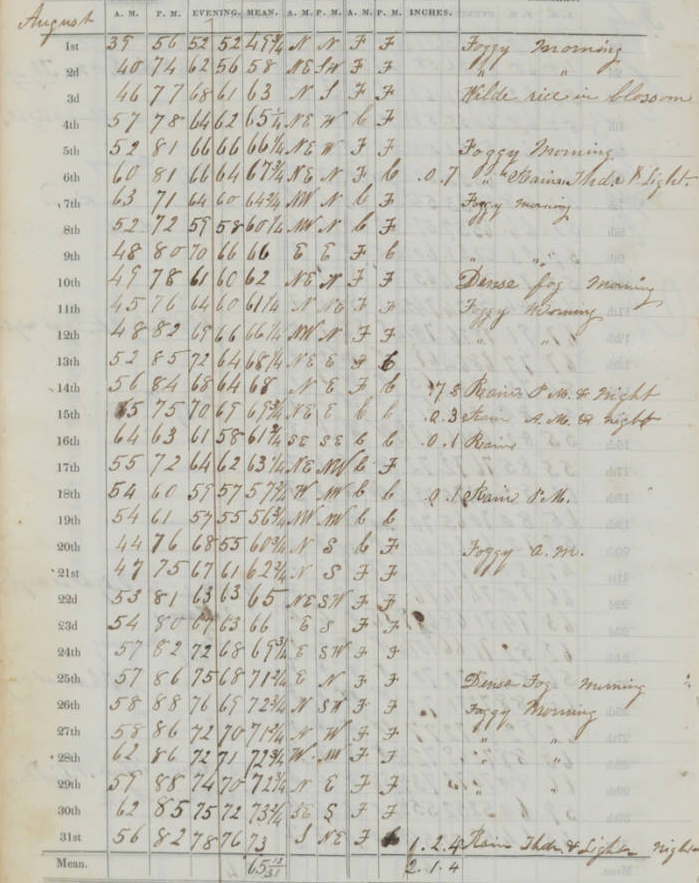 August
A. M. P. M. EVENING. MEAN. A. M. P. M. A. M. P. M. INCHES.
1st 39 56 52 52 49 3/4 N N F F Foggy Morning
2d 40 74 62 56 58 NE SW F F " "
3d 46 77 68 61 63 N S F F Wilde rice in blossom
4th 57 78 64 62 65 1/4 NE W C F
5th 52 81 66 66 66 1/4 NE W F F Foggy Morning
6th 60 81 66 64 67 3/4 NE N F C .0.7 " Rain Thdr & Light.
7th 63 71 64 60 64 2/4 NW N C F Foggy Morning
8th 52 72 59 58 60 1/4 NW N C F
9th 48 80 70 66 66 E E F C " "
10th 49 78 61 60 62 NE N F F Dense fog Morning
11th 45 76 64 60 61 1/4 N NE F F Foggy Morning
12th 48 82 69 66 66 1/4 NW N F F " "
13th 52 85 72 64 68 1/4 NE E F C
14th 56 84 68 64 68 N E F C .78 Rain P.M. & Night
15th 65 75 70 69 69 3/4 NE E C C .0.3 Rain A.M. & night
16th 64 63 61 58 61 2/4 SE SE C C .0.1 Rain
17th 55 72 64 62 63 1/4 NE NW C F
18th 54 60 59 57 57 2/4 W NW C C .0.1 Rain P.M.
19th 54 61 57 55 56 3/4 NW NW C C
20th 44 76 68 55 60 3/4 N S C F Foggy A.M.
21st 47 75 67 61 62 2/4 N S F F
22d 53 81 63 63 65 NE SW F F
23d 54 80 67 63 66 E S F F
24th 57 82 72 68 69 3/4 E SW F F
25th 57 86 75 68 71 2/4 E N F F Dense Fog Morning
26th 58 88 76 69 72 3/4 N SW F F Foggy Morning
27th 58 86 72 70 71 2/4 N W F F " "
28th 62 86 72 71 72 3/4 W NW F F " "
29th 59 88 74 70 72 3/4 N E F F " "
30th 62 85 75 72 73 2/4 SE S F F
31st 56 82 78 76 73 S NE F C 1.2.4 Rain Thdr & Lightn Night
Mean. 65 13/31 2.1.4